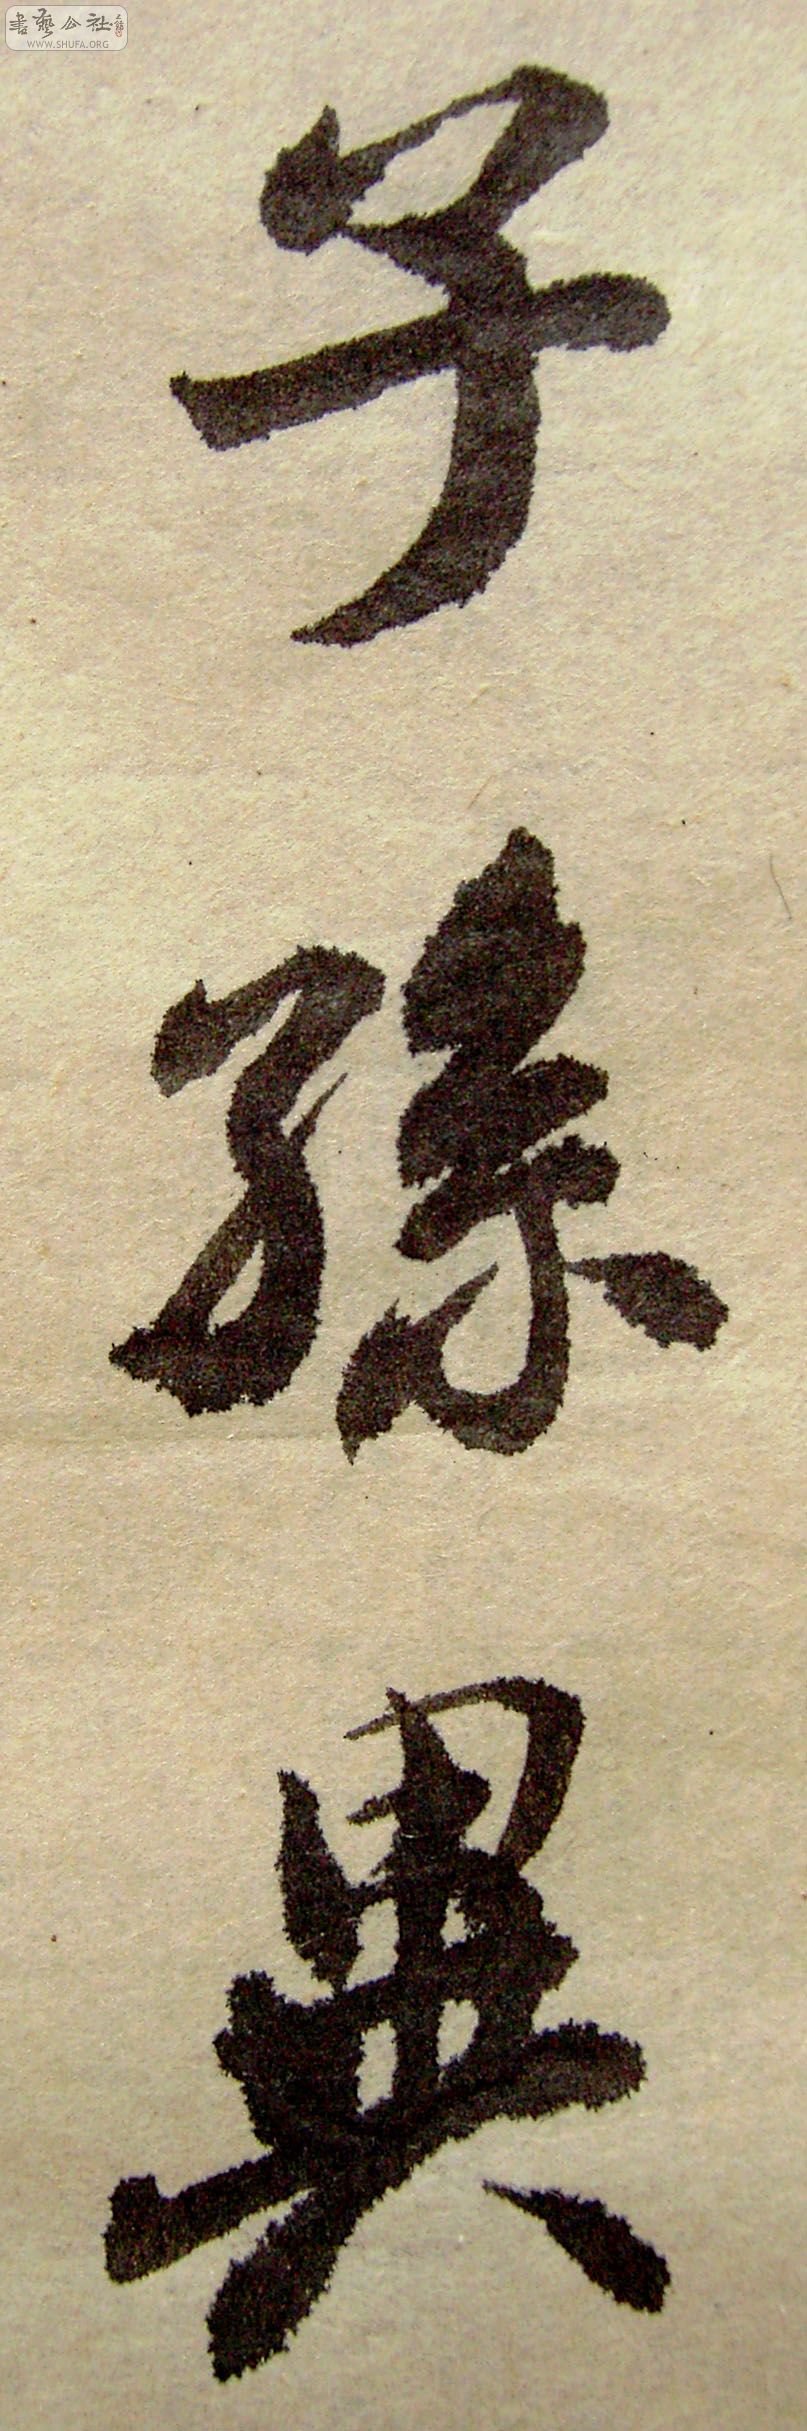 書藝公社
WWW.SHUFA.ORG
子
孫
異